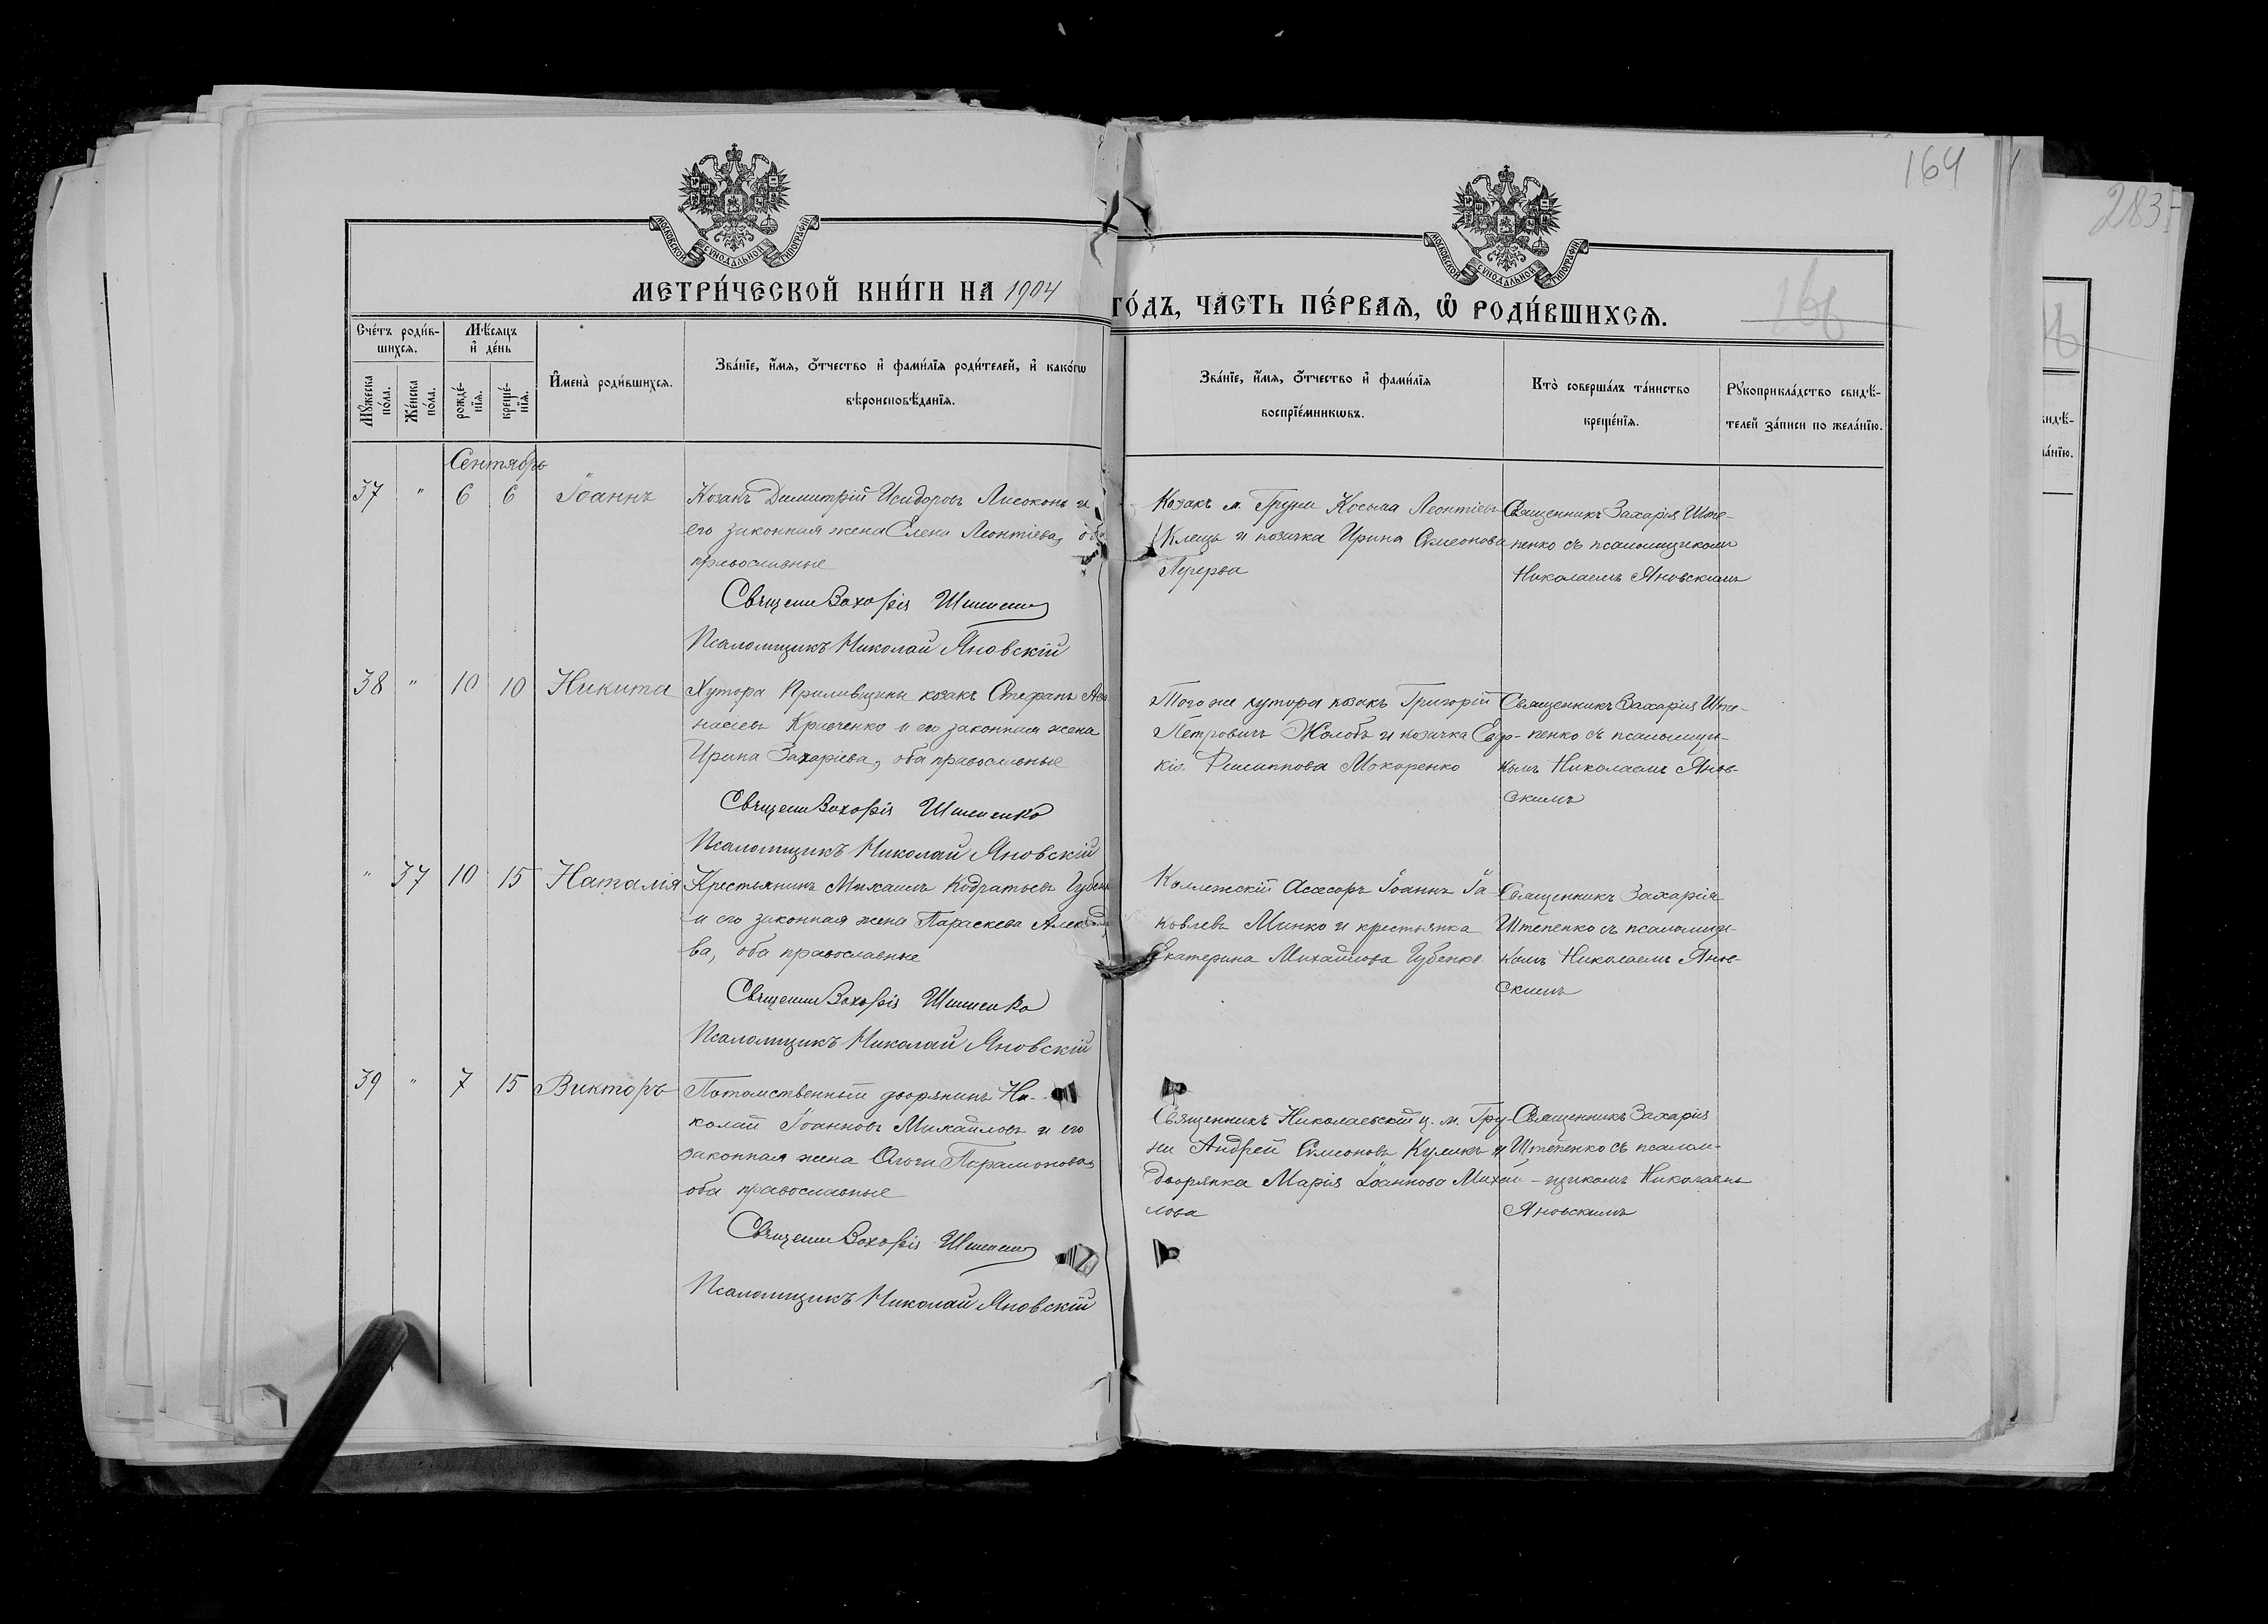 164
283
МОСКОВСКОЙ СѴНОДАЛЬНОЙ ТИПОГРАФІИ
МОСКОВСКОЙ СѴНОДАЛЬНОЙ ТИПОГРАФІИ
МЕТРИ́ЧЕСКОЙ КНИ́ГИ НА 1904
ГО́ДЪ, ЧАСТЬ ПЕ́РВАЯ, Ѿ РОДИ́ВШИХСЯ.
Сче́тъ роди́в-
шихся.
Мѣ́сяцъ
и҆ де́нь
Мꙋ́жеска
по́ла.
Же́нска
по́ла.
рожде́-
нїѧ.
креще́-
нїѧ.
И҆мена̀ роди́вшихсѧ.
Зва́нїе, и҆́мѧ, ѻ҆́тчество и҆ фами́лїѧ роди́телей, и҆ како́гѡ
вѣроисповѣ́данїѧ.
Зва́нїе, и҆́мѧ, ѻ҆́тчество и҆ фами́лїѧ
воспрїе́мникѡвъ.
Кто̀ соверша́лъ та́инство
креще́нїѧ.
Рꙋкоприкла́дство свидѣ́-
телей за́писи по жела́нїю.
Сентябрь
37 " 6 6 Іоаннъ
Козакъ Димитрій Исидоровъ Лисоконь и
его законная жена Елена Леонтіева, оба
православные
Священн Захарія Штепенко
Псаломщикъ Николай Яновскій
Козакъ м. Груни Косьма Леонтіевъ
Клещъ и козачка Ирина Симеонова
Перерва
Священникъ Захарія Ште-
пенко съ псаломщикомъ
Николаемъ Яновскимъ
38 " 10 10 Никита
Хутора козакъ Стефанъ Афа
насіевъ Кравченко и его законная жена
Ирина Захаріева, оба православные
Священн Захарія Штепенко
Псаломщикъ Николай Яновскій
Того же хутора козакъ Григорій
Петровичъ Жолобъ и козачка Евдо-
кія Филиппова Мокоренко
Священникъ Захарія Ште-
пенко съ псаломщи-
комъ Николаемъ Янов-
скимъ
" 37 10 15 Наталія
Крестьянинъ Михаилъ Кодратьевъ Губенк
и его законная жена Параскева
ва, оба православные
Священн Захарія Штепенко
Псаломщикъ Николай Яновскій
Коллежскій Асесоръ Іоаннъ Іа
ковлевъ Минко и крестьянка
Екатерина Михайлова Губенко
Священникъ Захарія
Штепенко съ псаломщи-
комъ Николаемъ Янов-
скимъ
39 " 7 15 Викторъ
Потомственный дворянинъ Ни-
колай Іоанновъ Михайловъ и его
законная жена Ольга Парамонова,
оба православные
Священн Захарія Штепенко
Псаломщикъ Николай Яновскій
Священникъ Николаевскій ц. м. Гру-
ни Андрей Симеоновъ Куликъ и
дворянка Марія Іоаннова Михай-
лова
Священникъ Захарія
Штепенко съ псалом-
щикомъ Николаемъ
Яновскимъ